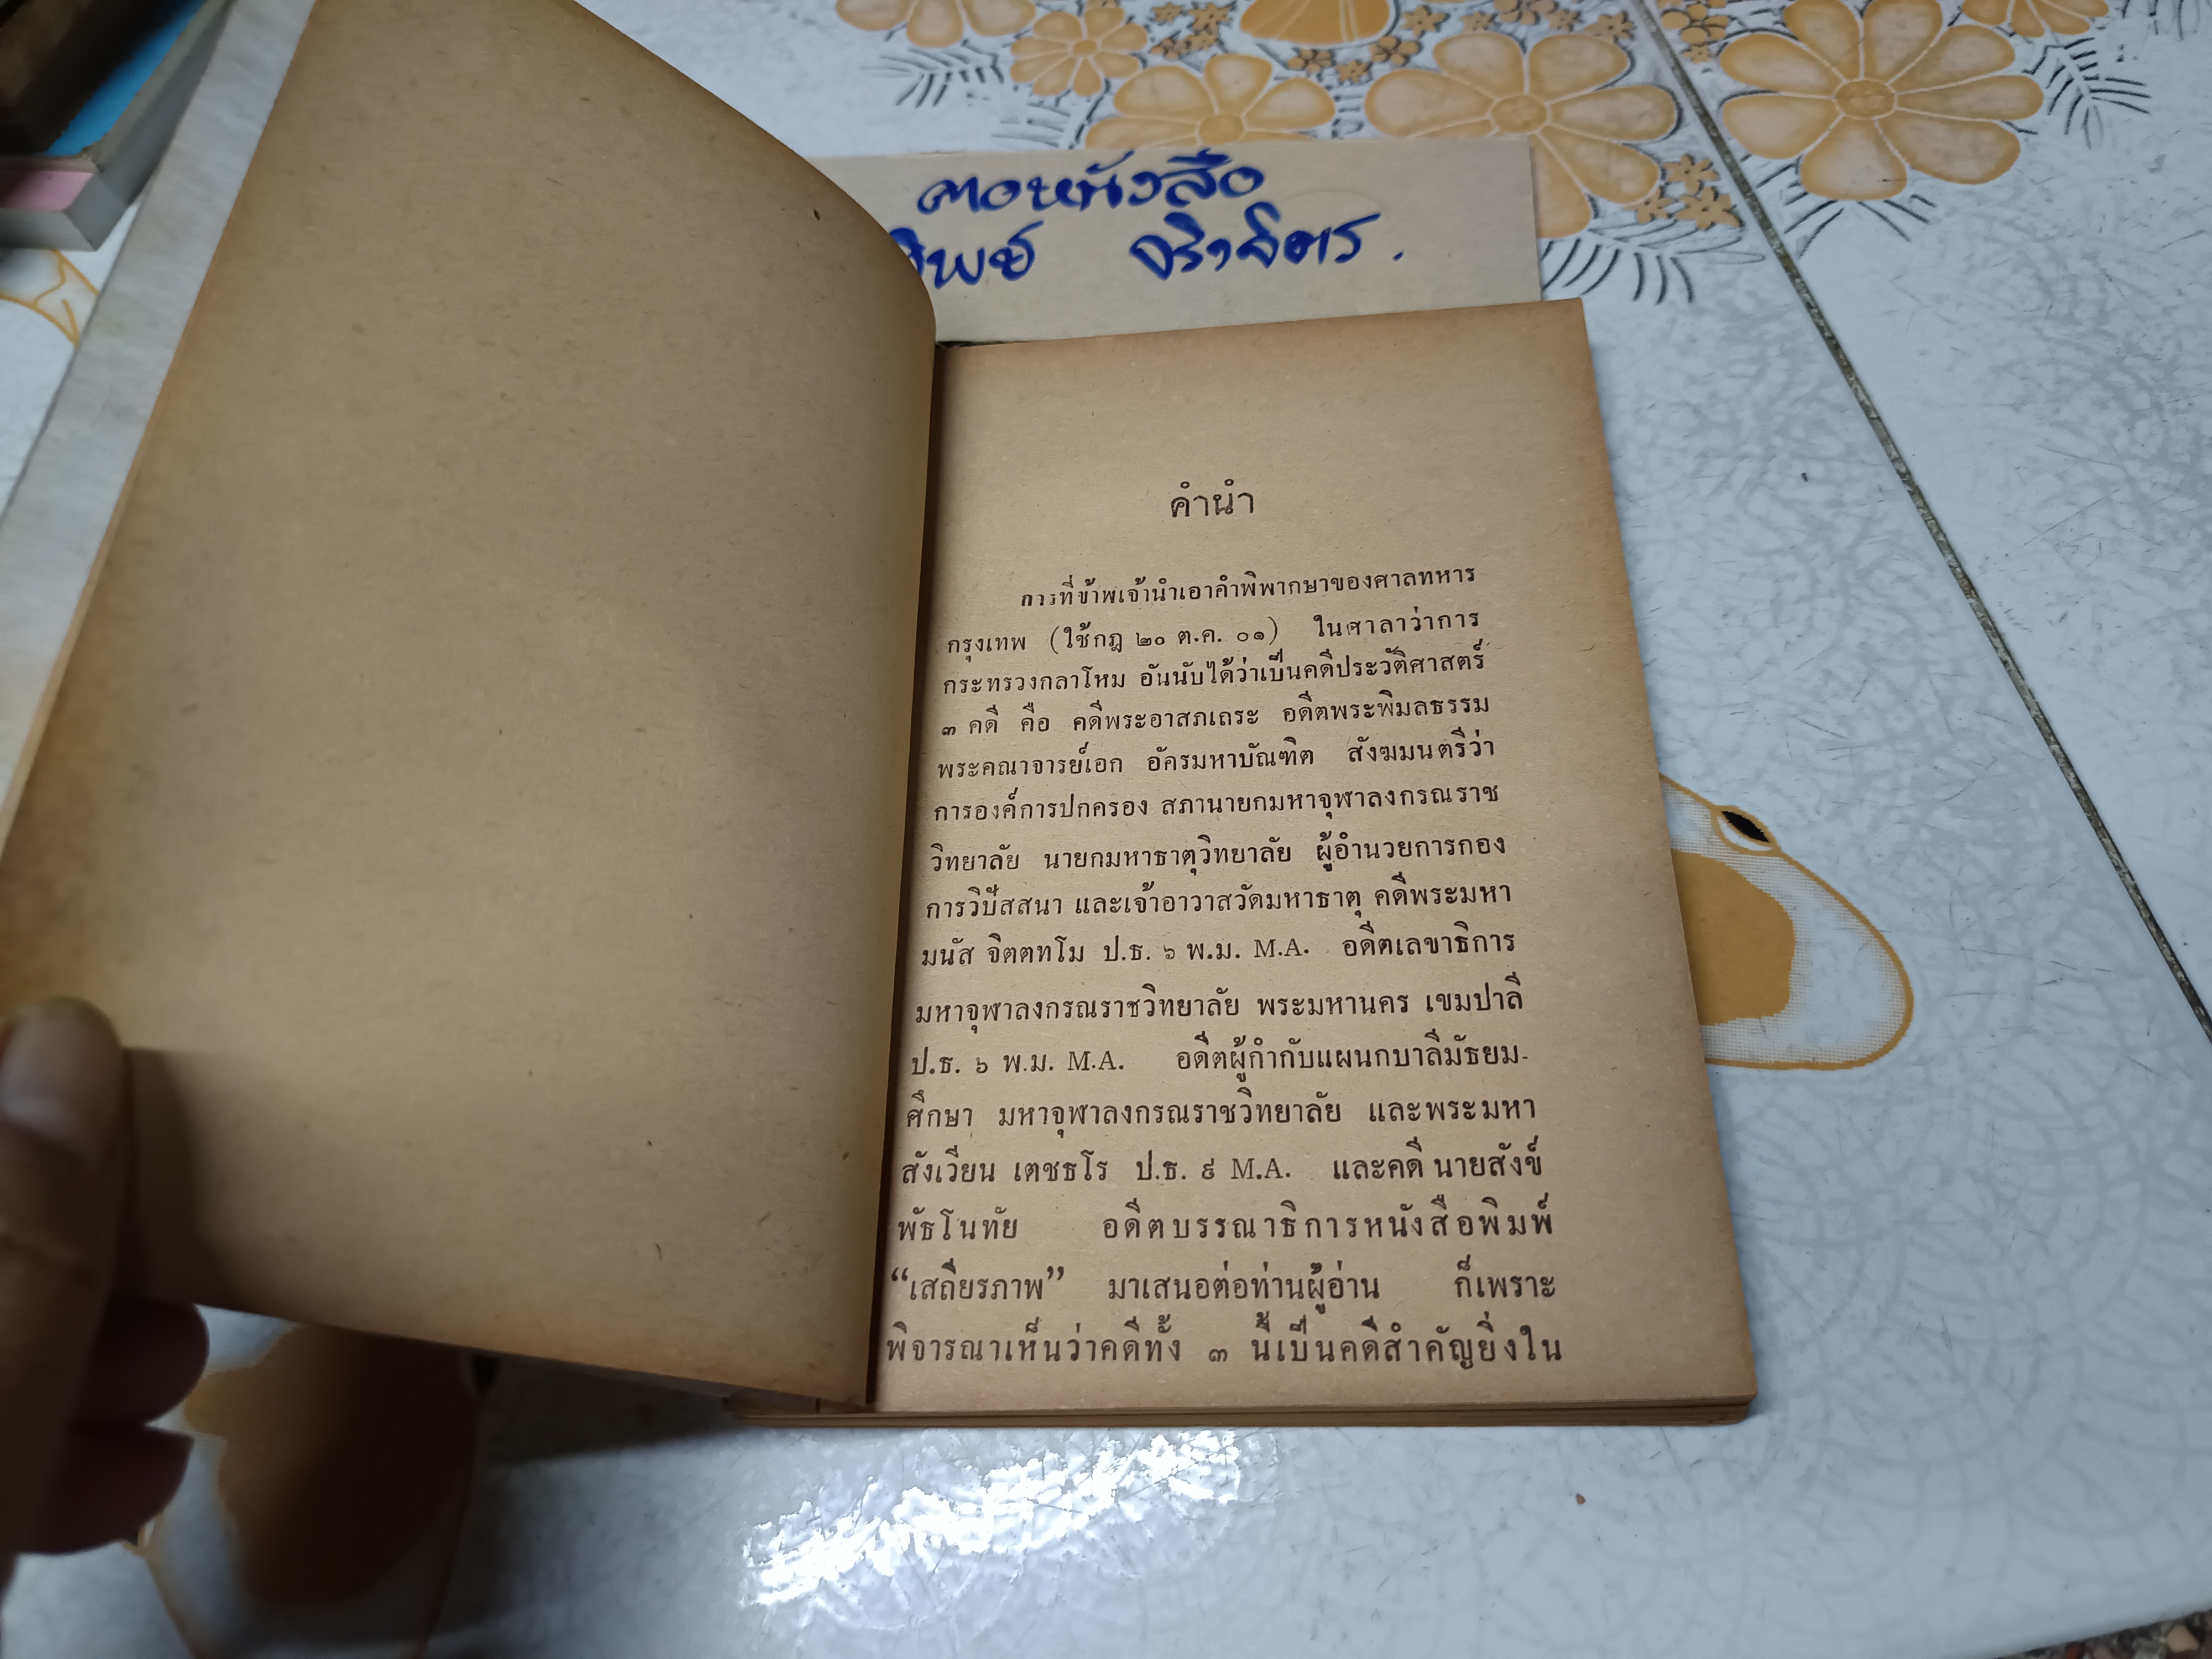 ตาอหนังสือ
ทิพย์ จริงจิตร.
คำนำ
การที่ข้าพเจ้านำเอาคำพิพากษาของศาลทหาร
กรุงเทพ (ใช้กฎ ๒๐ ต.ค. ๐๑) ในศาลาว่าการ
กระทรวงกลาโหม อันนับได้ว่าเป็นคดีประวัติศาสตร์
๓ คดี คือ คดีพระอาสภเถระ อดีตพระพิมลธรรม
พระคณาจารย์เอก อัครมหาบัณฑิต สังฆมนตรีว่า
การองค์การปกครอง สภานายกมหาจุฬาลงกรณราช
วิทยาลัย นายกมหาธาตุวิทยาลัย ผู้อำนวยการกอง
การวิปัสสนา และเจ้าอาวาสวัดมหาธาตุ คดีพระมหา
มนัส จิตตทโม ป.ธ. ๖ พ.ม. M.A. อดีตเลขาธิการ
มหาจุฬาลงกรณราชวิทยาลัย พระมหานคร เขมปาลี
ป.ธ. ๖ พ.ม. M.A. อดีตผู้กำกับแผนกบาลีมัธยม-
ศึกษา มหาจุฬาลงกรณราชวิทยาลัย และพระมหา
สังเวียน เตชธโร ป.ธ. ๙ M.A. และคดี นายสังข์
พัธโนทัย อดีตบรรณาธิการหนังสือพิมพ์
“เสถียรภาพ” มาเสนอต่อท่านผู้อ่าน ก็เพราะ
พิจารณาเห็นว่าคดีทั้ง ๓ นี้เป็นคดีสำคัญยิ่งใน